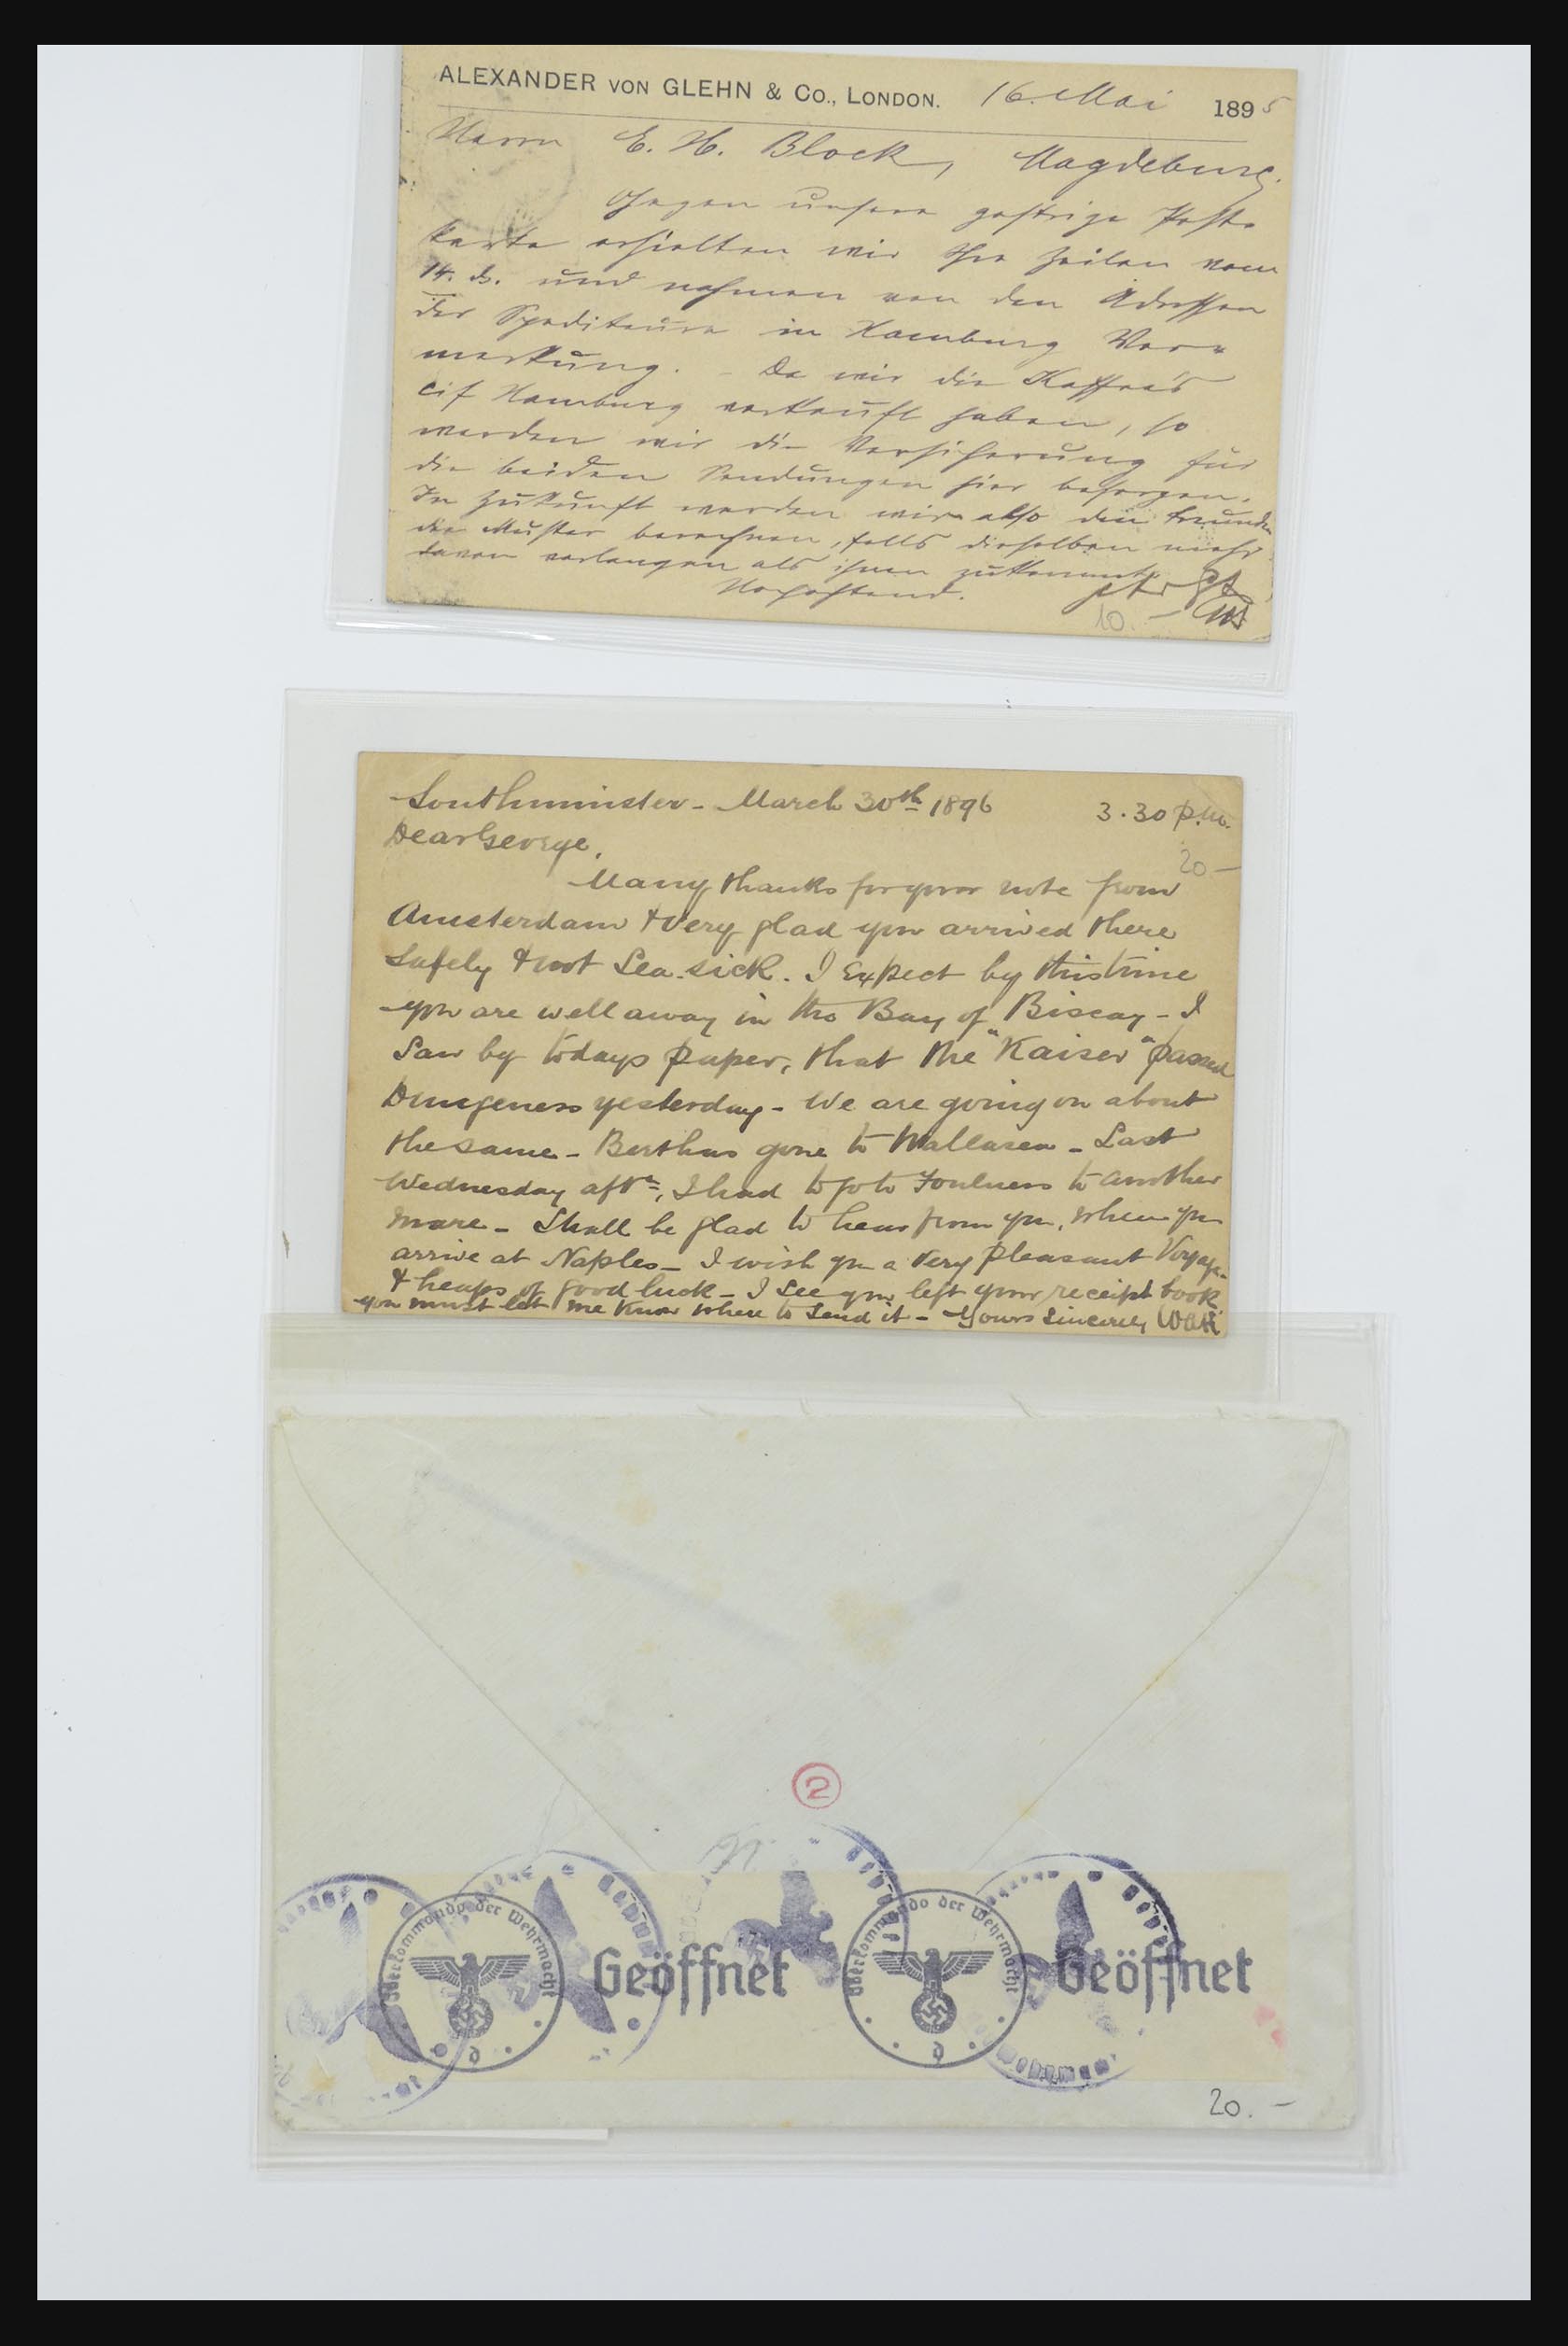 ALEXANDER VON GLEHN & Co., LONDON. 16. Mai 1895
Herrn E. H. Block, Magdeburg.
Gegen unsere gestrige Post-
karte erhielten wir Ihre Zeilen vom
14. ds. und nehmen von den Adressen
der Spediteure in Hamburg Vor-
merkung. - Da wir die Kaffee's
cif Hamburg verkauft haben, so
werden wir die Versicherung für
die beiden Sendungen hier besorgen.
In Zukunft werden wir also den Freunden
die Muster berechnen, falls dieselben mehr
davon verlangen als ihnen zukommt.
Hochachtend.
10. -
Southminster - March 30th 1896 3.30 p.m.
Dear George,
20 -
Many thanks for your note from
Amsterdam & very glad you arrived there
safely & not Sea-sick. I Expect by this time
you are well away in the Bay of Biscay - I
Saw by todays paper, that the "Kaiser" passed
Dungeness yesterday - We are going on about
the same - Berthas gone to Wallasea - Last
Wednesday aftn, I had to go to Foulness to another
mare - Shall be glad to hear from you, when you
arrive at Naples - I wish you a very pleasant Voyage
& heaps of good luck - I See you left your receipt book
you must let me know where to Send it - Yours Sincerely
2
Oberkommando der Wehrmacht
d
Geöffnet
Oberkommando der Wehrmacht
d
Geöffnet
20. -